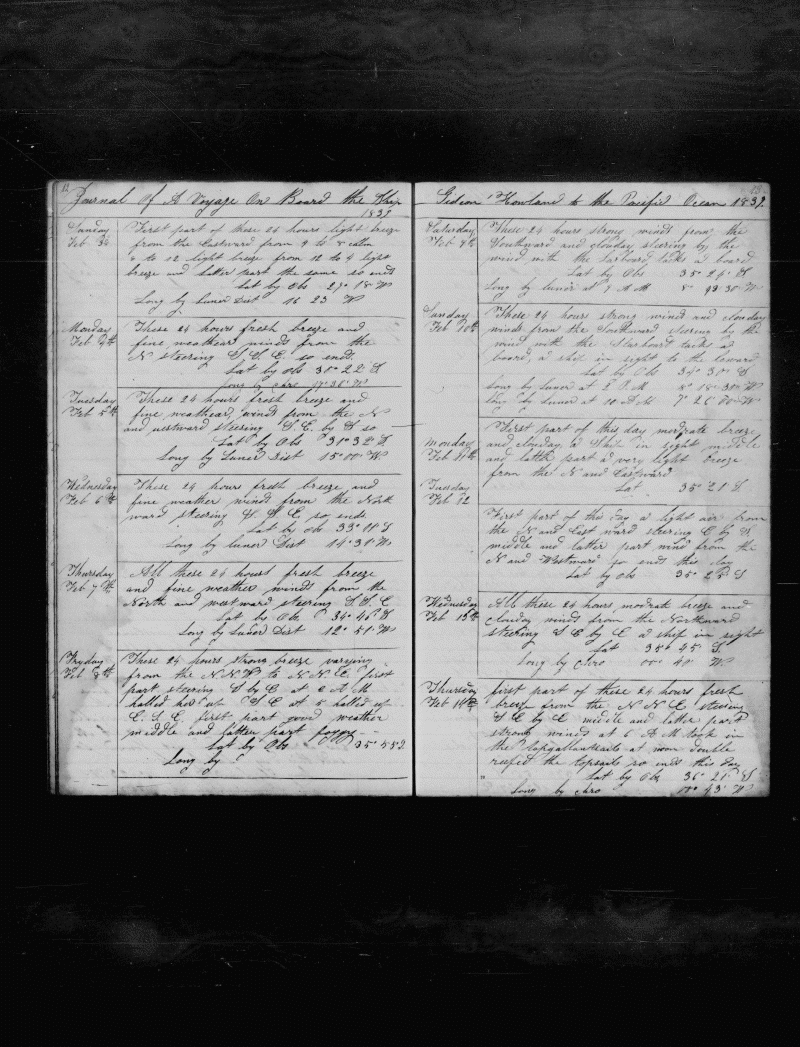 12
Journal Of A Voyage On Board the Ship
1839
Sunday
Feb 3d
First part of these 24 hours light breeze
from the Eastward from 4 to 8 calm
8 to 12 light breeze from 12 to 4 light
breeze and latter part the same so ends
Lat by Obs 29° 18 W
Long by Lunar Dist 16 23 W
Monday
Feb 4th
These 24 hours fresh breeze and
fine weathear winds from the
N steering S.S.E. so ends
Lat by obs 30° 22 S
Long by Cro 17° 36 W
Tuesday
Feb 5th
These 24 hours fresh breeze and
fine weathear, winds from the N
and westward steering S.E. by S so
Lat by Obs 31° 32 S
Long by Lunar Dist 15° 00 W
Wednesday
Feb 6th
These 24 hours fresh breeze and
fine weather winds from the North
ward steering S S E so ends
Lat by ob 33° 11 S
Long by lunar Dist 14° 31 W
Thursday
Feb 7th
All these 24 hours fresh breeze
and fine weather winds from the
North and westward steering S.S.E
Lat by Obs 34° 41 S
Long by Lunar Dist 12° 51 W
Fryday
Feb 8th
These 24 hours strong breeze varying
from the N N W to N N E first
part steering S by E at 2 A M
halled her up S E at 5 halled up
E.S.E. first part good weather
middle and latter part foggy
Lat by Obs 35° 55 S
Long by
13
Gideon Howland to the Pacific Ocean 1839.
Saturday
Feb 9th
These 24 hours strong winds from the
Southward and clouday steering by the
wind with the larbord tacks a board
Lat by Obs 35° 24 S
Long by lunar at 9 A.M. 8° 43 30 W
Sunday
Feb 10th
These 24 hours strong winds and clouday
winds from the Southward steering by the
wind with the Starbord tacks a
board, a ship in sight to the leward
Lat by Obs 34° 30 S
Long by Lunar at 8 A.M. 8° 18 30 W
Long by Lunar at 10 A M 7° 26 00 W
Monday
Feb 11th
First part of this day modrate breeze
and clouday, a Ship in sight middle
and latth part a very light breeze
from the N and Eastward
Lat 35° 21 S
Tuesday
Feb 12
First part of this day a light air from
the N and East ward steering E by S
middle and latter part wind from the
N and Westward so ends this day
Lat by Obs 35° 25 S
Wednesday
Feb 13th
All these 24 hours modrate breeze and
clouday winds from the Northward
steering S E by E a ship in sight
Lat 35° 45 S.
Long by Cro 00° 40 W
Thursday
Feb 14th
first part of these 24 hours fresh
breeze from the N N E steering
S E by E middle and latter part
strong winds at 6 A M took in
the topgallantsails at noon double
reefed the topsails so ends this day
Lat by Obs 36° 21 S
Long by Cro 00° 43 W